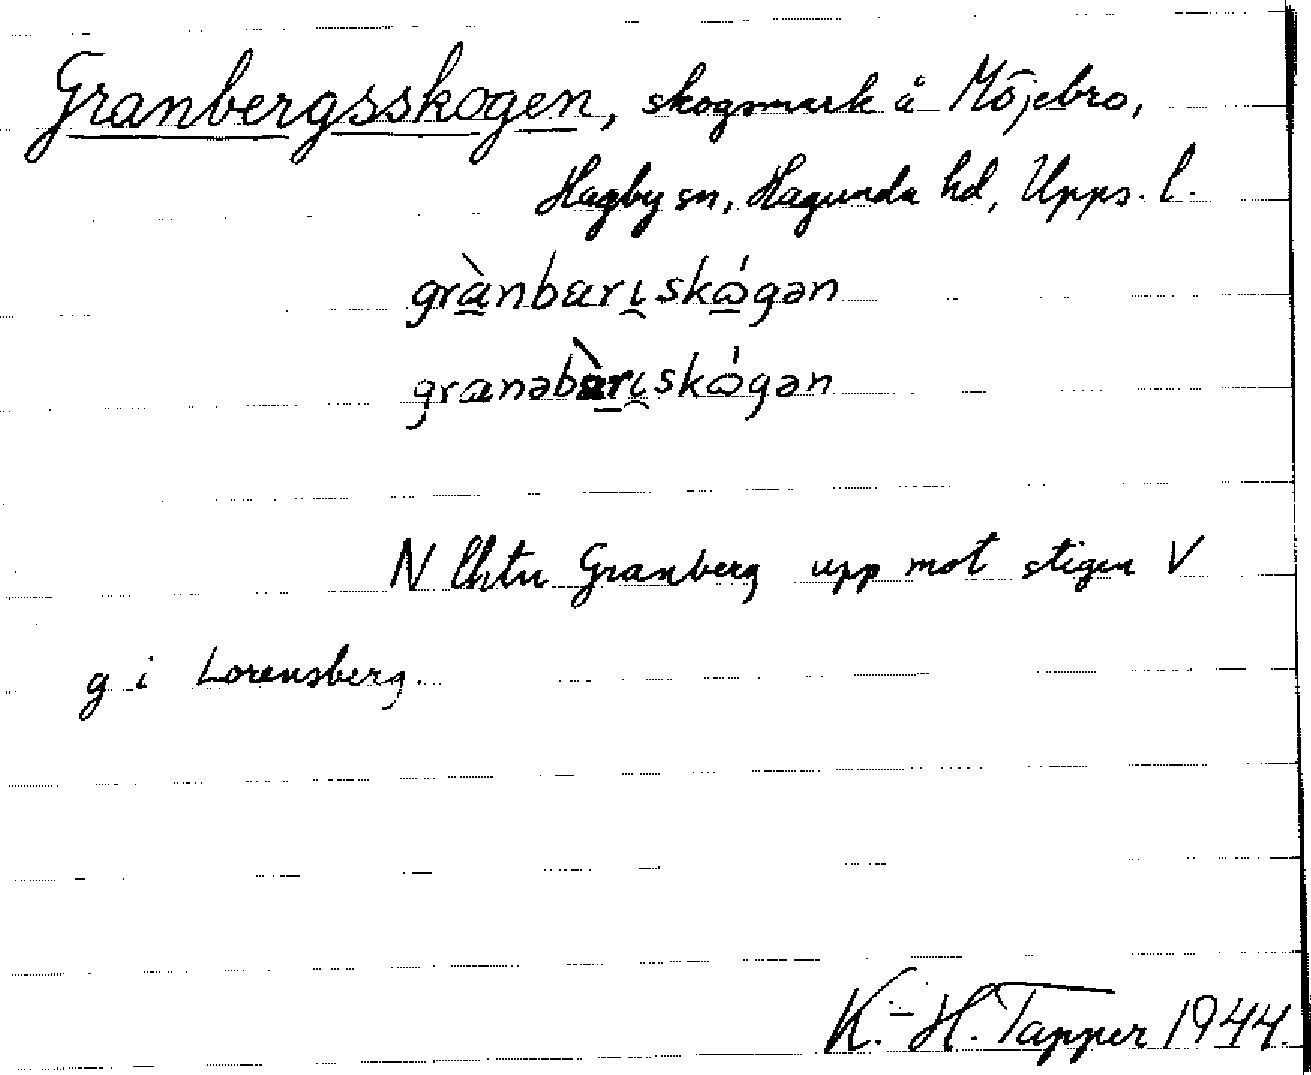 Granbergsskogen, skogsmark å Möjebro,
Hagby sn, Hagunda hd, Upps. l.
grànbarι skǿgən
granəbàrι skǿgən
N lhtn Granberg upp mot stigen V
g i Lorensberg.
K.-H. Tapper 1944.